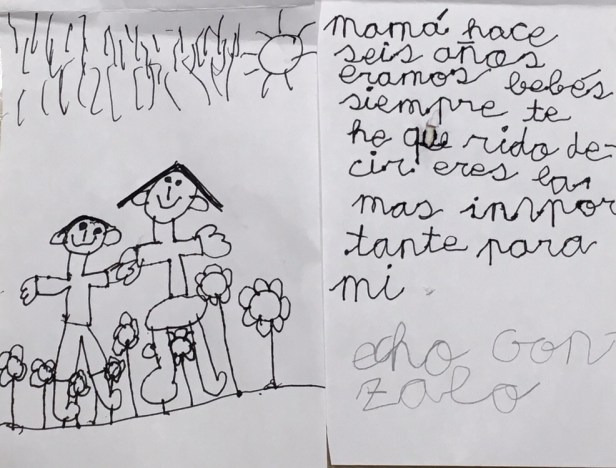 mamá hace
seis años
eramos bebés
siempre te
he que rido de-
cir eres la
mas innpor
tante para
mi
echo Gon
zalo